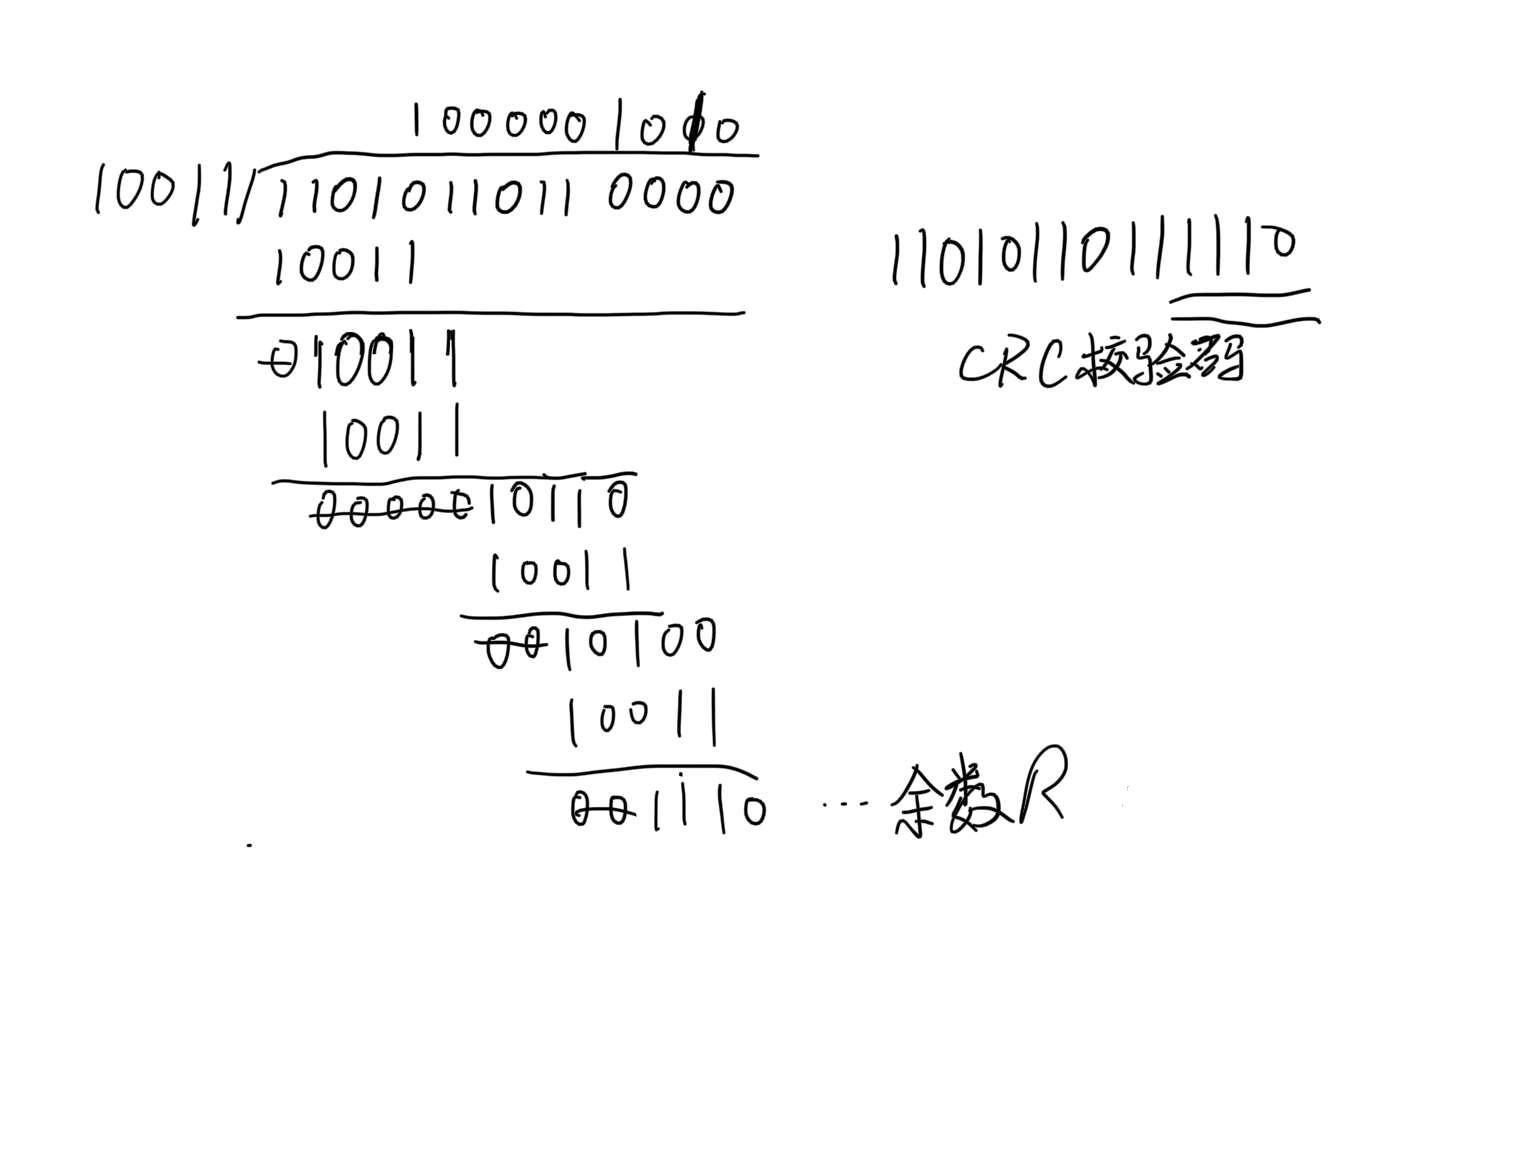 1000001010
10011/110101101100000
10011
010011
10011
0000010110
10011
0010100
10011
001110 ... 余数R
110101101111110
CRC校验码